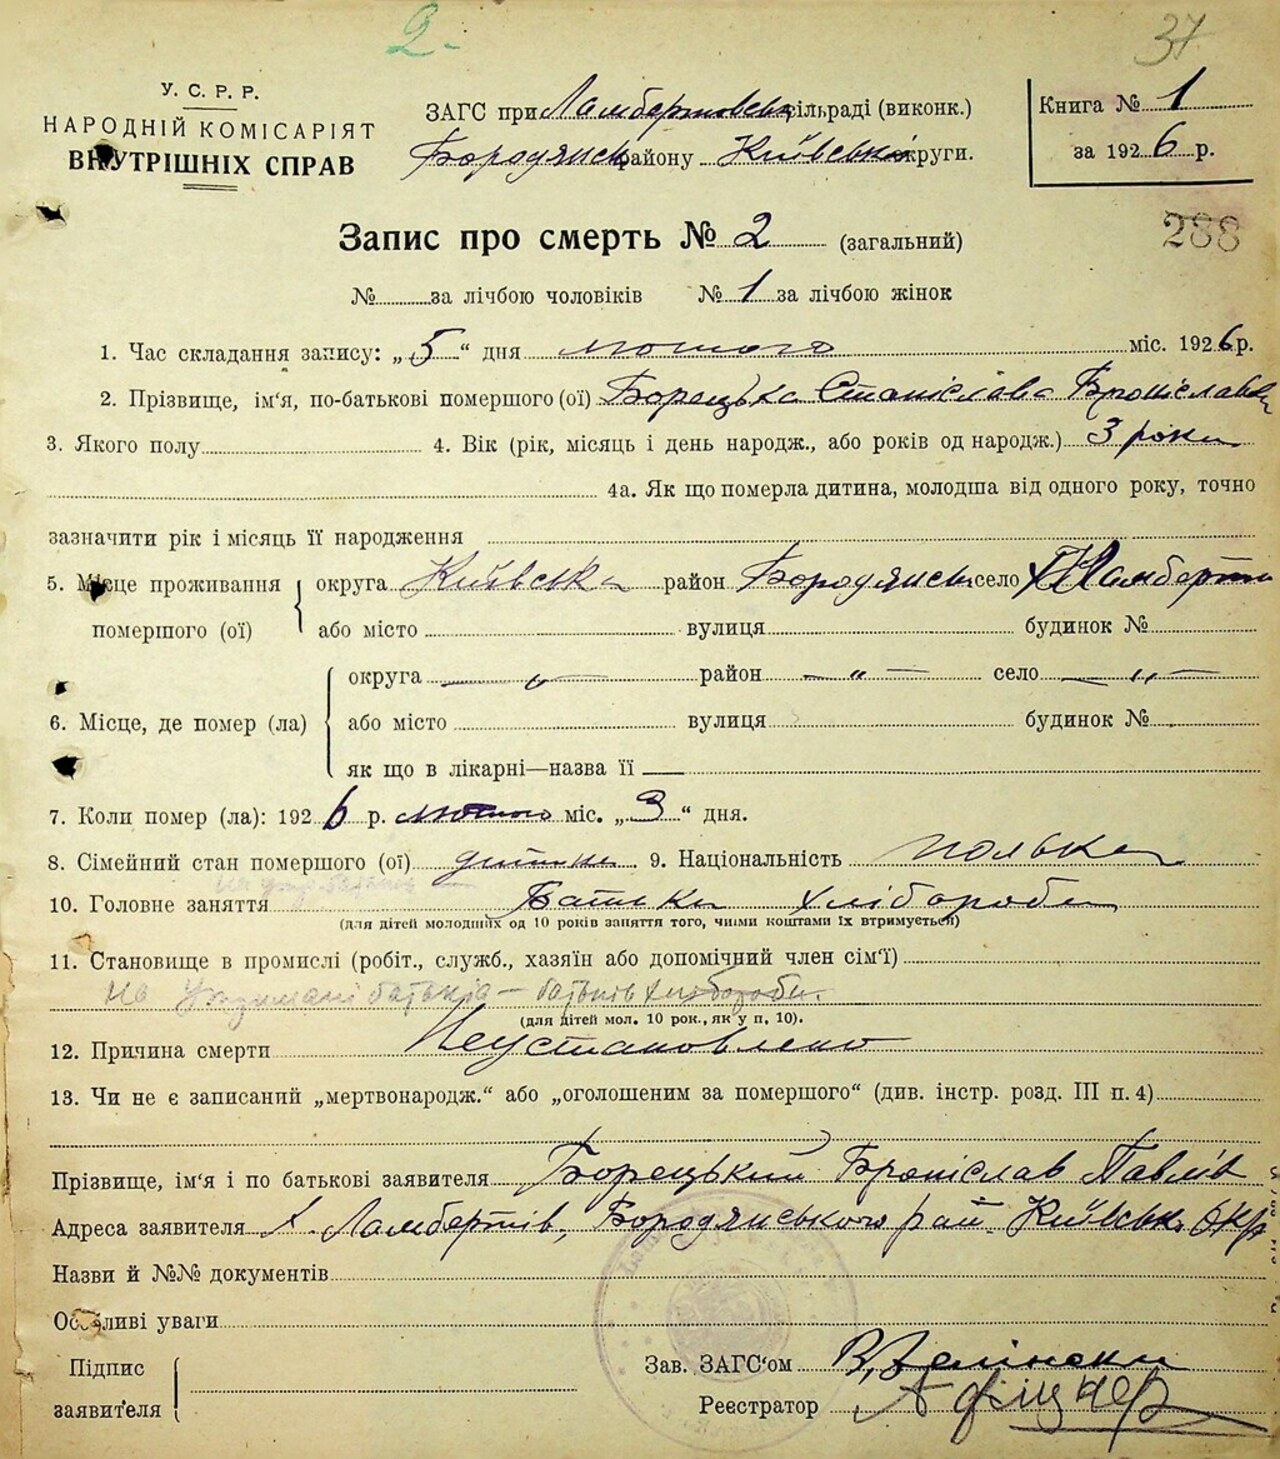 2.
37
У. С. Р. Р.
НАРОДНІЙ КОМІСАРІЯТ
ВНУТРІШНІХ СПРАВ
ЗАГС при Ламбертовськ сільраді (виконк.)
Бородянськ району Київської округи.
Книга № 1
за 1926 р.
Запис про смерть № 2 (загальний)
288
№ за лічбою чоловіків № 1 за лічбою жінок
1. Час складання запису: „5“ дня лютого міс. 1926 р.
2. Прізвище, ім‘я, по-батькові помершого (ої) Борецька Станіслава Броніславівна
3. Якого полу 4. Вік (рік, місяць і день народж., або років од народж.) 3 роки
4а. Як що померла дитина, молодша від одного року, точно
зазначити рік і місяць її народження
5. Місце проживання помершого (ої) округа Київська район Бородянськ село Ламберти
або місто вулиця будинок №
6. Місце, де помер (ла) округа — „ — район — „ — село — „ —
або місто вулиця будинок №
як що в лікарні—назва її —
7. Коли помер (ла): 1926 р. лютого міс. „3“ дня.
8. Сімейний стан помершого (ої) дитина 9. Національність полька
10. Головне заняття Батьки хлібороби
(для дітей молодших од 10 років заняття того, чиїми коштами їх втримується)
11. Становище в промислі (робіт., служб., хазяїн або допомічний член сім‘ї)
На утриманні батьків — батьків хлібороби.
(для дітей мол. 10 рок., як у п. 10).
12. Причина смерти Неустановлено
13. Чи не є записаний „мертвонародж.“ або „оголошеним за помершого“ (див. інстр. розд. III п. 4)
Прізвище, ім‘я і по батькові заявителя Борецький Броніслав Павлів
Адреса заявителя х. Ламбертів, Бородянського рай. Київськ. окр
Назви й №№ документів
Особливі уваги
Підпис
заявителя
Зав. ЗАГС‘ом
Реєстратор